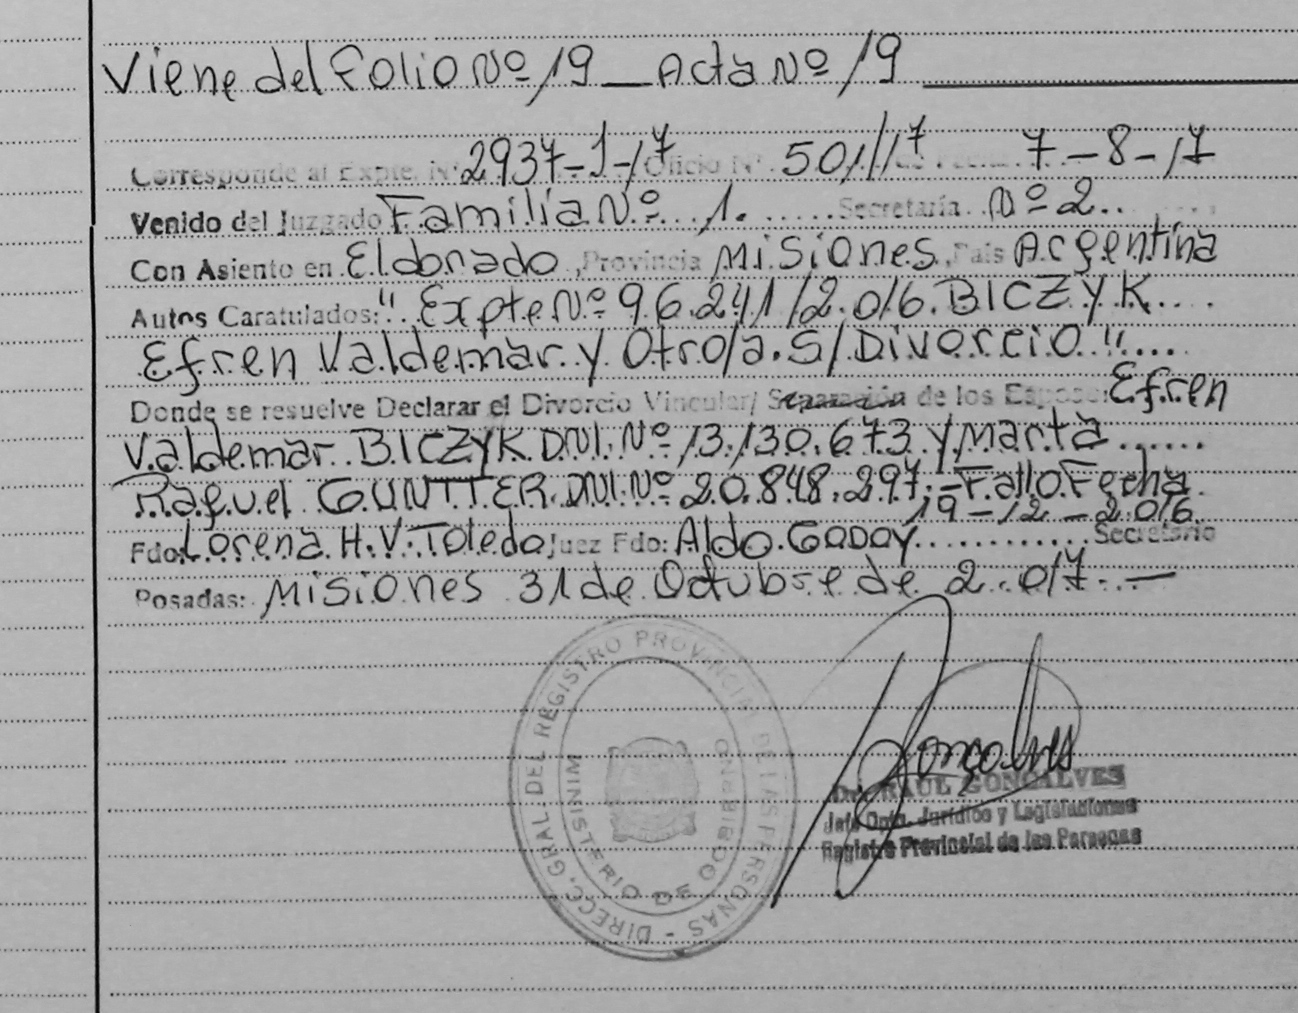 Viene del Folio Nº 19 — Acta Nº 19
Corresponde al Expte. Nº 2937-1-17 Oficio Nº 501/17 7-8-17
Venido del Juzgado Familia Nº 1. Secretaría Nº 2
Con Asiento en Eldorado, Provincia Misiones, País Argentina
Autos Caratulados: "Expte Nº 96.241/2.016. BICZYK
Efren Valdemar y Otro/a. S/ Divorcio"
Donde se resuelve Declarar el Divorcio Vincular/ Separación de los Esposos: Efren
Valdemar BICZYK DNI. Nº 13.130.673 y Marta
Raquel GUNTTER. DNI. Nº 20.848.297.- Fallo Fecha
19-12-2016
Fdo: Lorena H.V. Toledo Juez Fdo: Aldo Godoy Secretario
Posadas: Misiones 31 de Octubre de 2.017.—
DIRECC. GRAL. DEL REGISTRO PROVINCIAL DE LAS PERSONAS -
MINISTERIO DE GOBIERNO
Gonçalves
Dr. RAUL GONÇALVES
Jefe Dpto. Jurídico y Legislaciones
Registro Provincial de las Personas